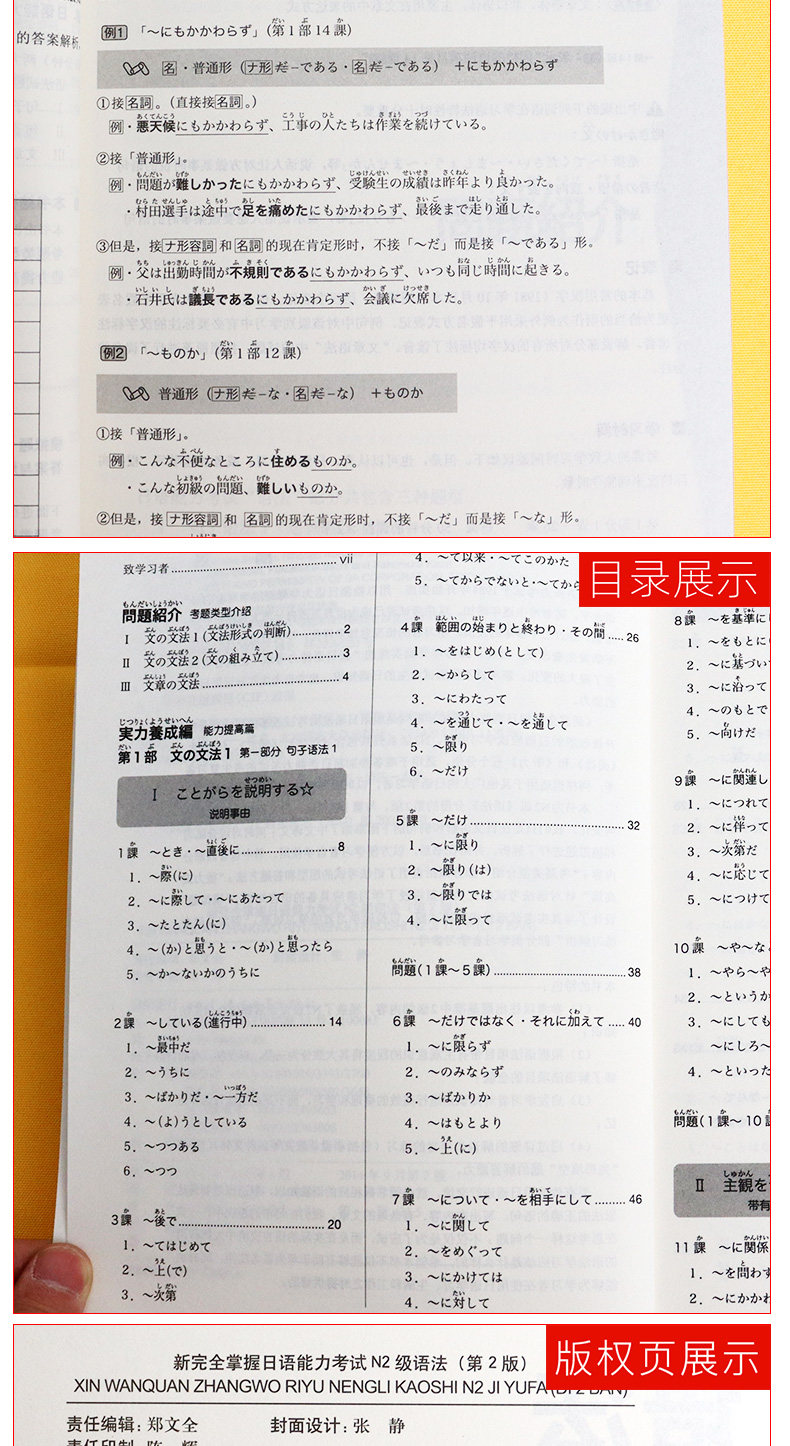 的答案解析
例1 「～にもかかわらず」（第1部14課）
名・普通形（ナ形だ－である・名だ－である） ＋にもかかわらず
①接名詞。（直接接名詞。）
例・悪天候にもかかわらず、工事の人たちは作業を続けている。
②接「普通形」。
例・問題が難しかったにもかかわらず、受験生の成績は昨年より良かった。
・村田選手は途中で足を痛めたにもかかわらず、最後まで走り通した。
③但是，接ナ形容詞和名詞的现在肯定形时，不接「～だ」而是接「～である」形。
例・父は出勤時間が不規則であるにもかかわらず、いつも同じ時間に起きる。
・石井氏は議長であるにもかかわらず、会議に欠席した。
例2 「～ものか」（第1部12課）
普通形（ナ形だ－な・名だ－な） ＋ものか
①接「普通形」。
例・こんな不便なところに住めるものか。
・こんな初級の問題、難しいものか。
②但是，接ナ形容詞和名詞的现在肯定形时，不接「～だ」而是接「～な」形。
目录展示
致学习者 vii
問題紹介 考题类型介绍
Ⅰ 文の文法1（文法形式の判断） 2
Ⅱ 文の文法2（文の組み立て） 3
Ⅲ 文章の文法 4
実力養成編 能力提高篇
第1部 文の文法1 第一部分 句子语法1
Ⅰ ことがらを説明する☆
说明事由
1課 ～とき・～直後に 8
1．～際(に)
2．～に際して・～にあたって
3．～たとたん(に)
4．～(か)と思うと・～(か)と思ったら
5．～か～ないかのうちに
2課 ～している(進行中) 14
1．～最中だ
2．～うちに
3．～ばかりだ・～一方だ
4．～(よ)うとしている
5．～つつある
6．～つつ
3課 ～後で 20
1．～てはじめて
2．～上(で)
3．～次第
4．～て以来・～てこのかた
5．～てからでないと・～てから
4課 範囲の始まりと終わり・その間 26
1．～をはじめ(として)
2．～からして
3．～にわたって
4．～を通じて・～を通して
5．～限り
6．～だけ
5課 ～だけ 32
1．～に限り
2．～限り(は)
3．～限りでは
4．～に限って
問題(1課～5課) 38
6課 ～だけではなく・それに加えて 40
1．～に限らず
2．～のみならず
3．～ばかりか
4．～はもとより
5．～上(に)
7課 ～について・～を相手にして 46
1．～に関して
2．～をめぐって
3．～にかけては
4．～に対して
8課 ～を基準に
1．～をもとに
2．～に基づい
3．～に沿って
4．～のもとで
5．～向けだ
9課 ～に関連し
1．～につれて
2．～に伴って
3．～次第だ
4．～に応じて
5．～につけて
10課 ～や～な
1．～やら～や
2．～というか
3．～にしても
～にしろ～
4．～といった
問題(1課～10
Ⅱ 主観を
带有
11課 ～に関係
1．～を問わず
2．～にかかわ
版权页展示
新完全掌握日语能力考试N2级语法（第2版）
XIN WANQUAN ZHANGWO RIYU NENGLI KAOSHI N2 JI YUFA (DI 2 BAN)
责任编辑：郑文全 封面设计：张 静